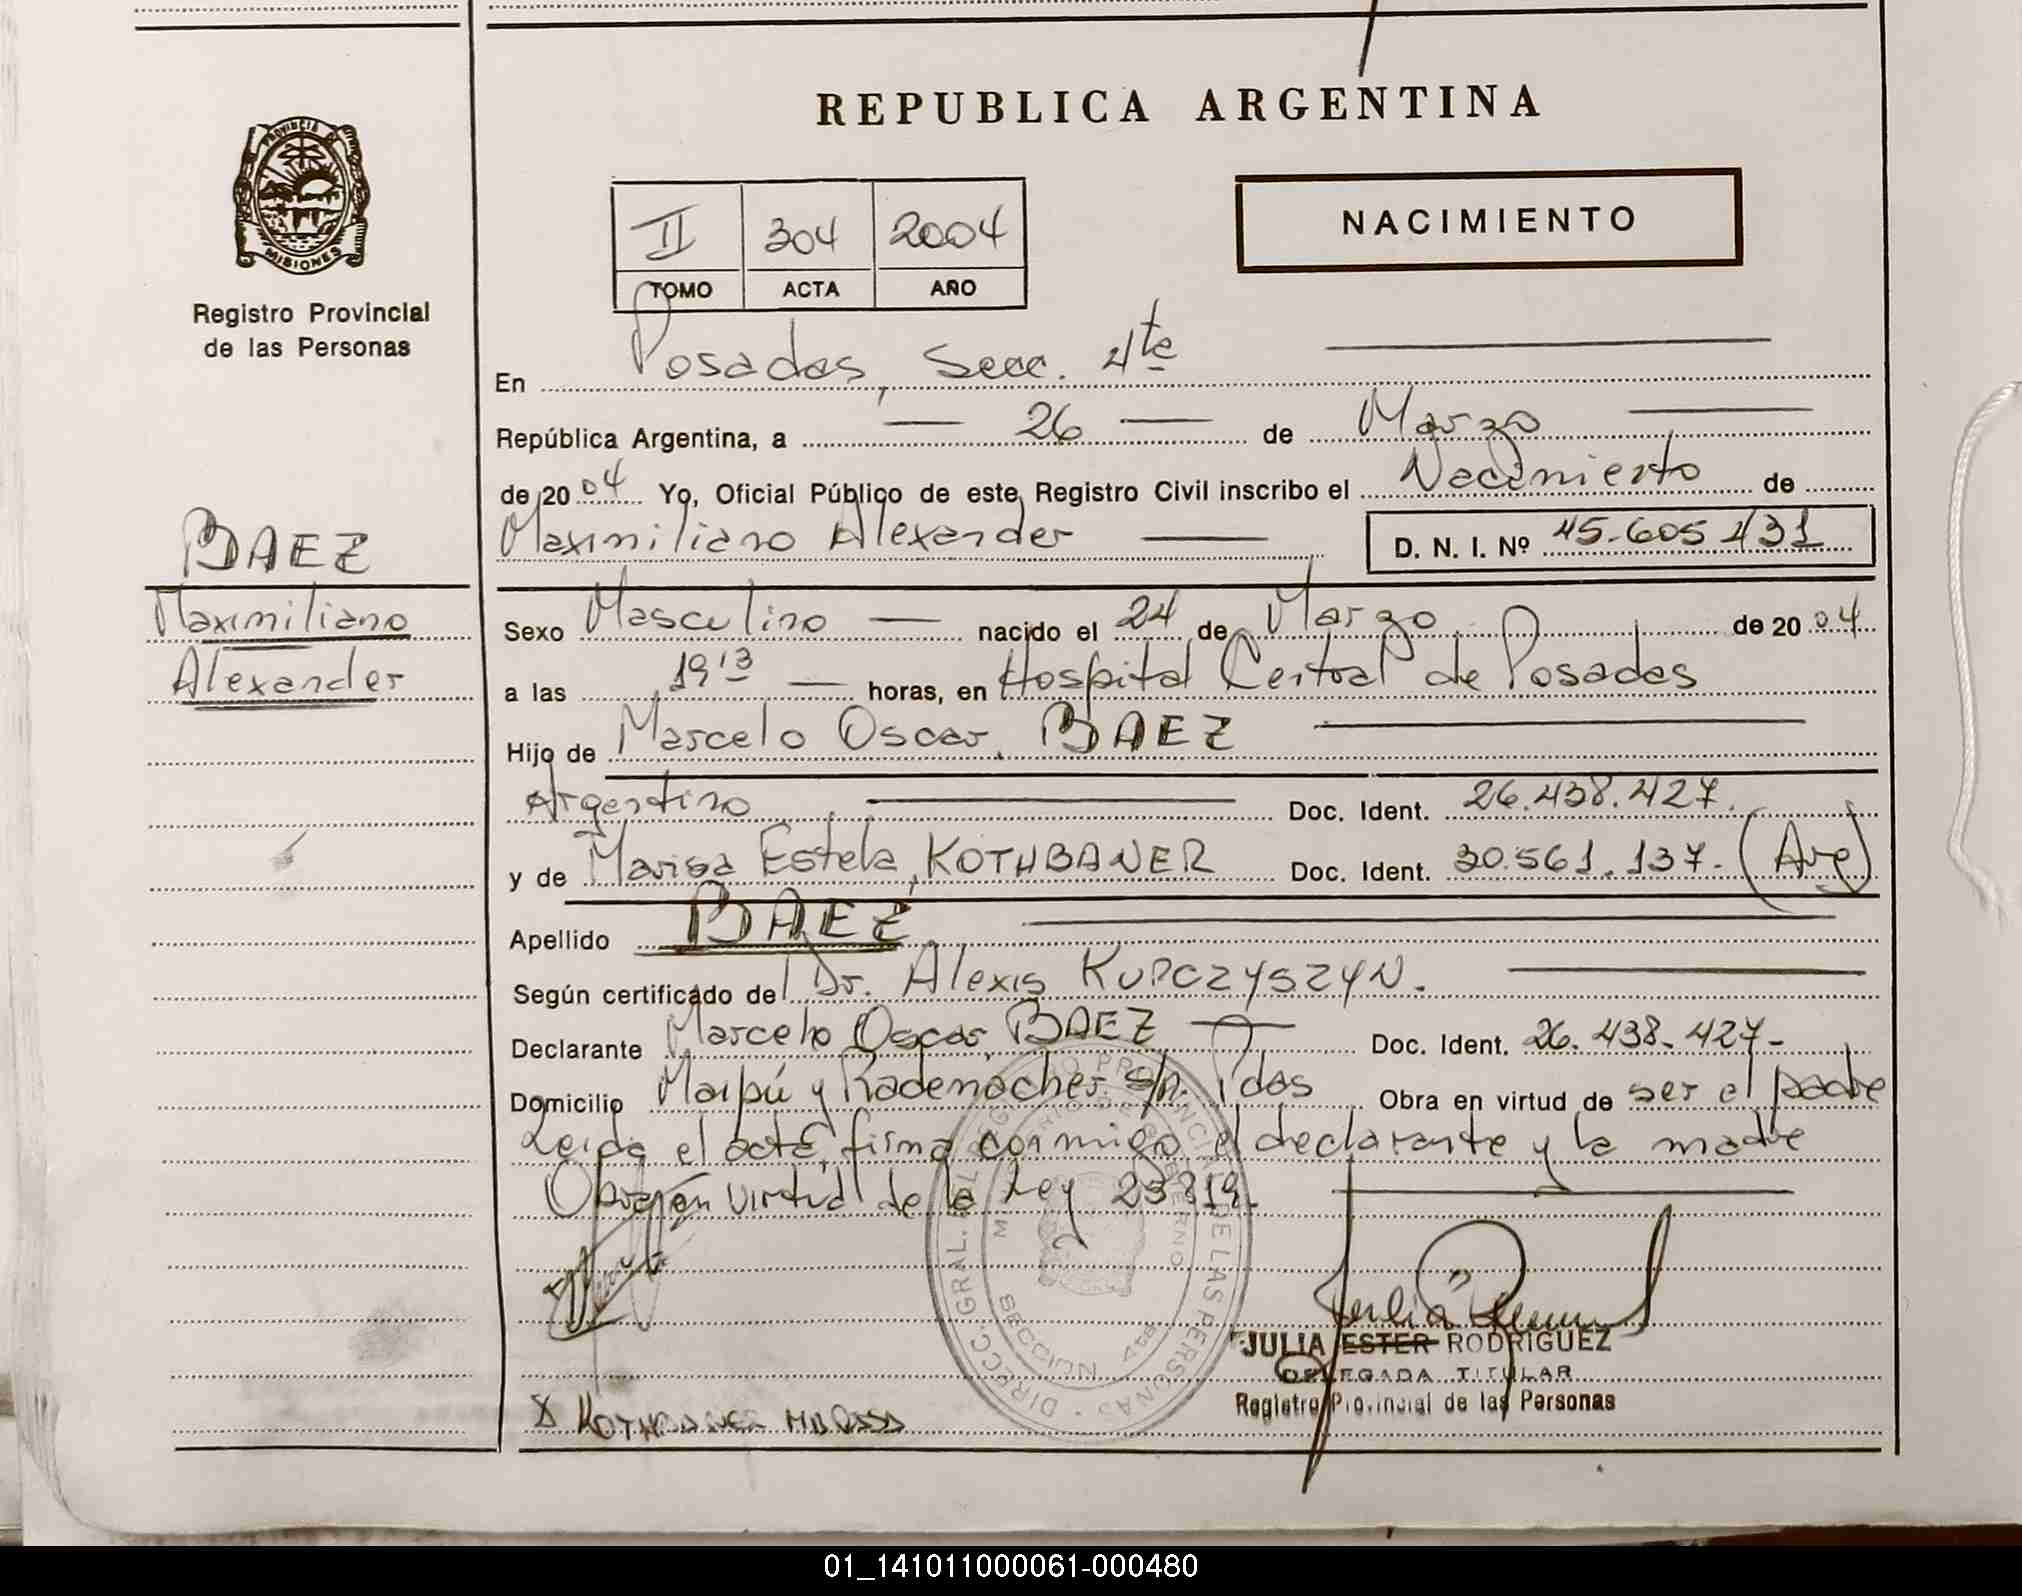 REPUBLICA ARGENTINA
PROVINCIA DE
MISIONES
Registro Provincial
de las Personas
II 304 2004
TOMO ACTA AÑO
NACIMIENTO
En Posadas, Secc. 4ta
República Argentina, a 26 de Marzo
de 2004 Yo, Oficial Público de este Registro Civil inscribo el Nacimiento de
Maximiliano Alexander D. N. I. Nº 45.605.431
BAEZ
Maximiliano
Alexander
Sexo Masculino nacido el 24 de Marzo de 2004
a las 19'13 horas, en Hospital Central de Posadas
Hijo de Marcelo Oscar, BAEZ
Argentino Doc. Ident. 26.438.427.
y de Marisa Estela, KOTHBAUER Doc. Ident. 30.561.137- (Arg)
Apellido BAEZ
Según certificado del Dr. Alexis KUPCZYSZYN.
Declarante Marcelo Oscar, BAEZ Doc. Ident. 26.438.427-
Domicilio Maipú y Rademacher s/n. Pdas Obra en virtud de ser el padre
Leida el acta, firma conmigo el declarante y la madre
Obra en virtud de la Ley
DIRECC. GRAL. DEL REGISTRO PROVINCIAL DE LAS PERSONAS
SECCION 4ta
Julia
JULIA ESTER RODRIGUEZ
DELEGADA TITULAR
Registro Provincial de las Personas
X KOTHBAUER MARISA
01_141011000061-000480